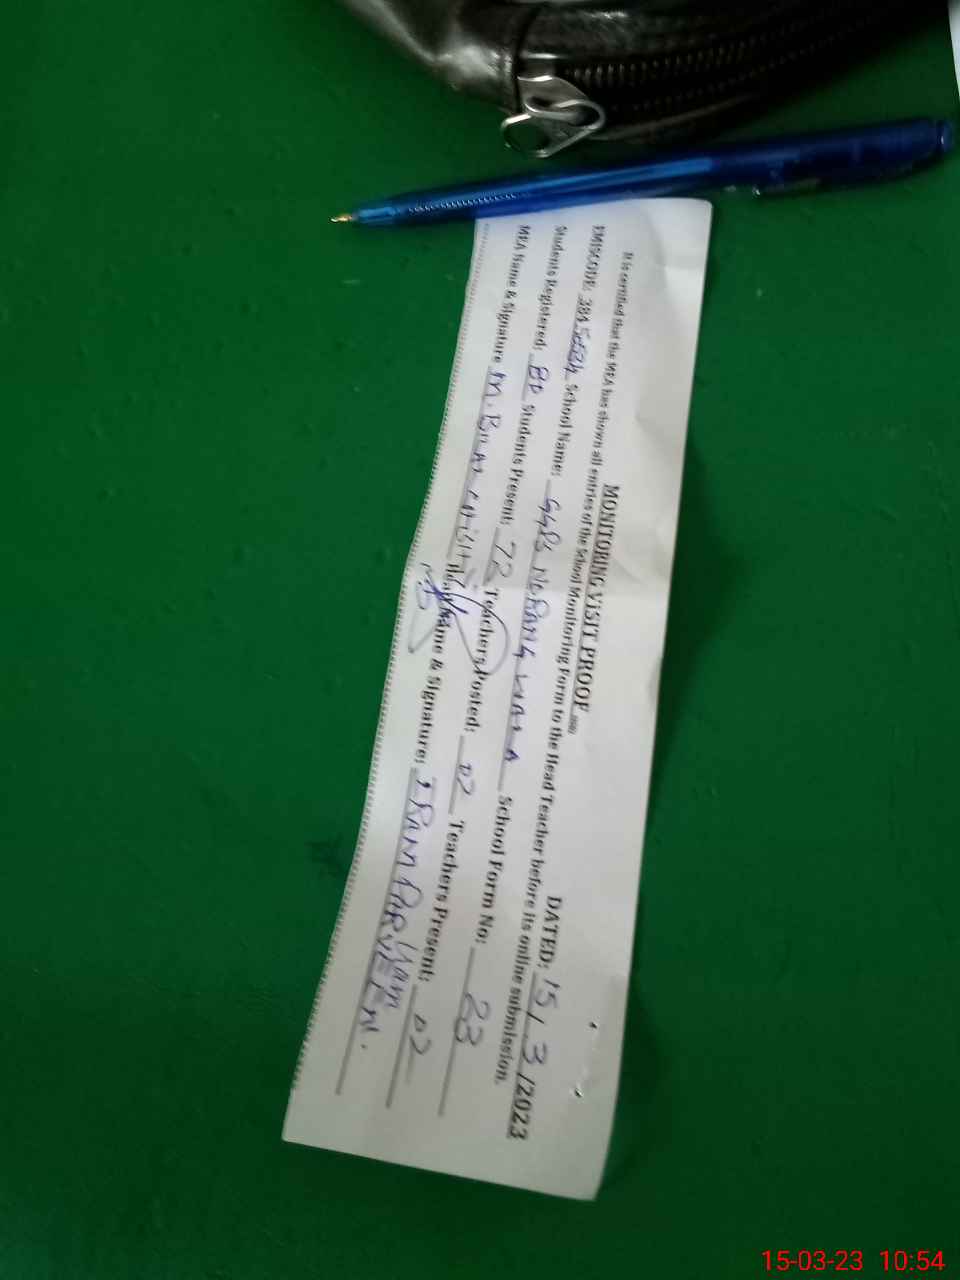 MONITORING VISIT PROOF
DATED: 15/3/2023
It is certified that the MEA has shown all entries of the School Monitoring Form to the Head Teacher before its online submission.
EMISCODE: School Name: GGPS NORANG WALA School Form No: 23
Students Registered: 80 Students Present: 72 Teachers Posted: 02 Teachers Present: 02
MEA Name & Signature M. BILAL CHISHTI Head Name & Signature: IRAM PARVEEN.
15-03-23 10:54